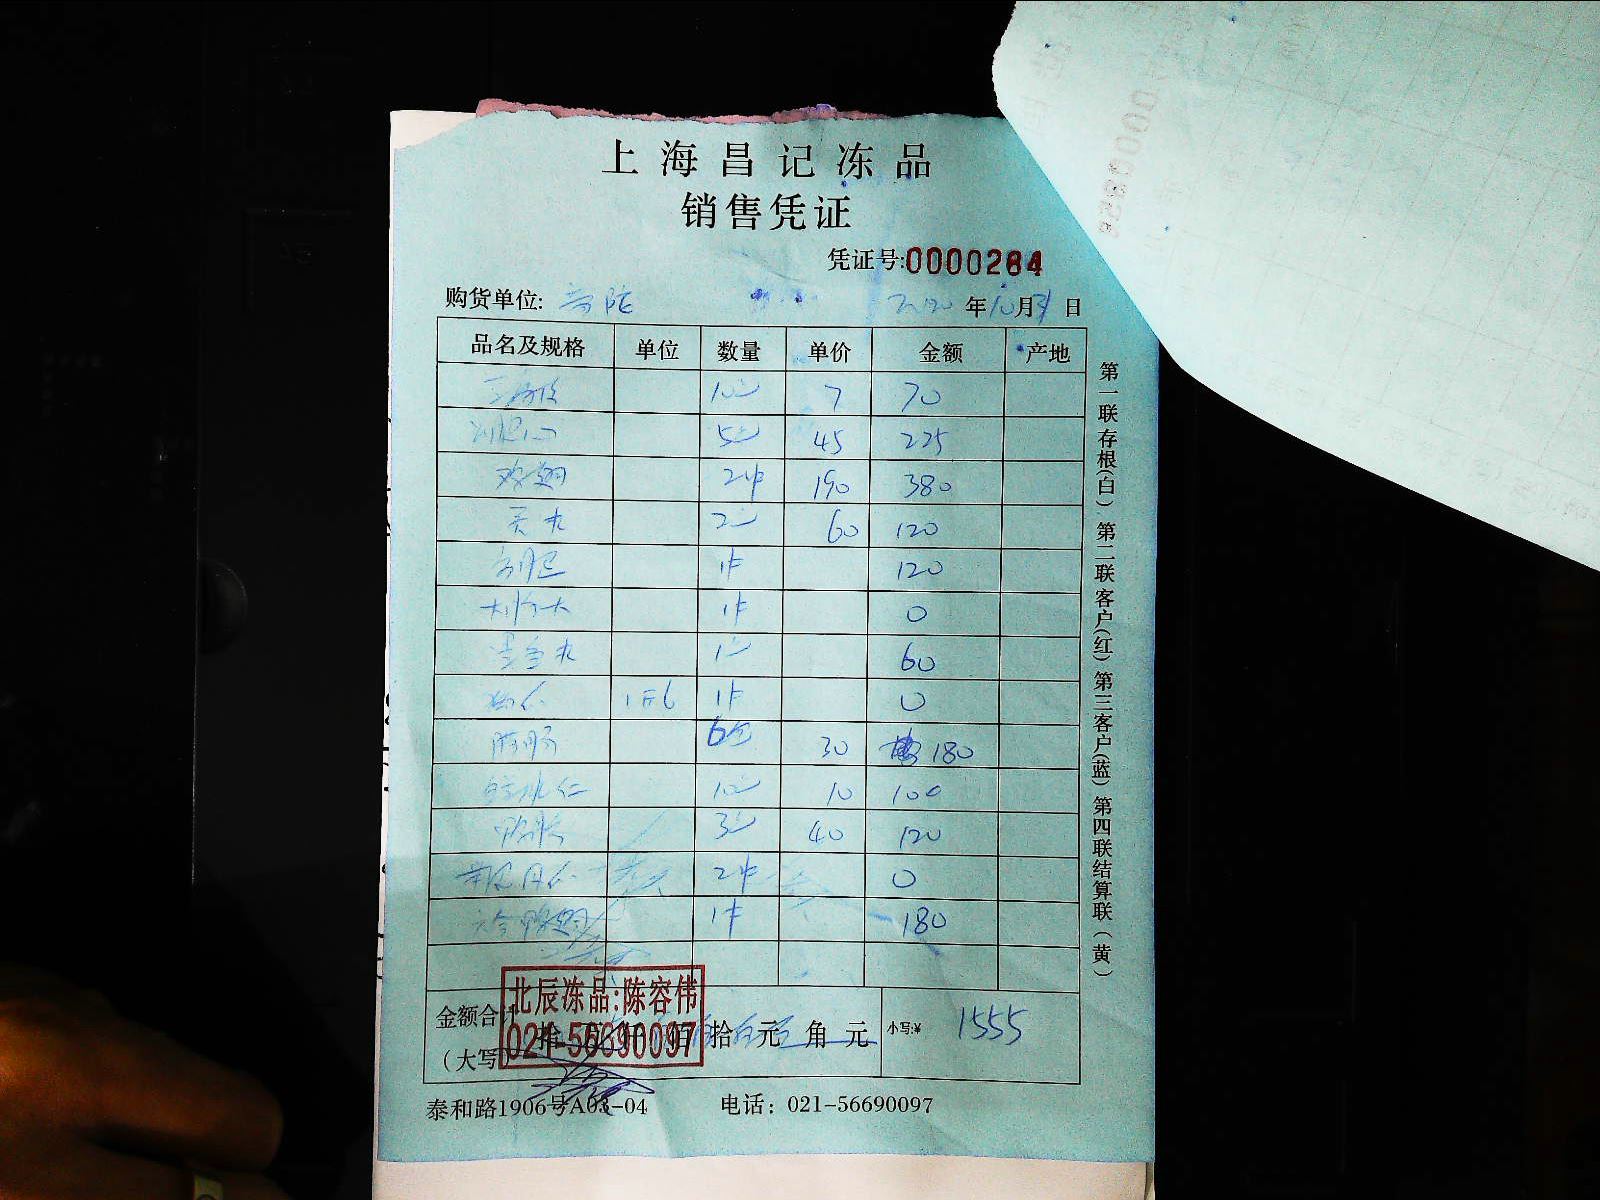 上海昌记冻品
销售凭证
凭证号:0000264
购货单位: 普陀 2020年10月31日
品名及规格 单位 数量 单价 金额 产地
10包 7 70
5包 45 225
鸡翅 2件 190 380
贡丸 2包 60 120
1件 120
1件 0
墨鱼丸 1包 60
1件6 1件 0
6包 30 180
10包 10 100
鸭肠 3包 40 120
2件 0
六合鸭翅 1件 180
金额合计
(大写) 拾 佰 拾 元 角 元 小写:¥ 1555
北辰冻品:陈容伟
021-56690097
泰和路1906号A03-04 电话：021-56690097
第一联存根(白) 第二联客户(红) 第三客户(蓝) 第四联结算联(黄)